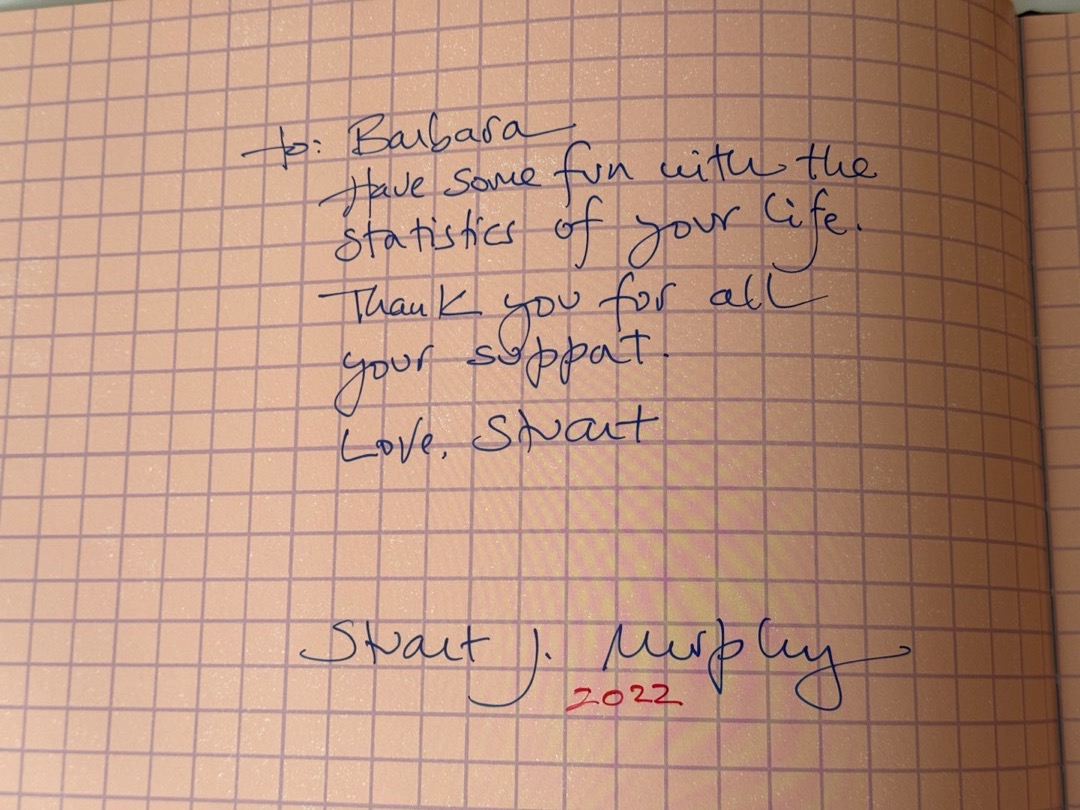 to: Barbara
Have some fun with the
statistics of your life.
Thank you for all
your support.
Love, Stuart
Stuart J. Murphy
2022